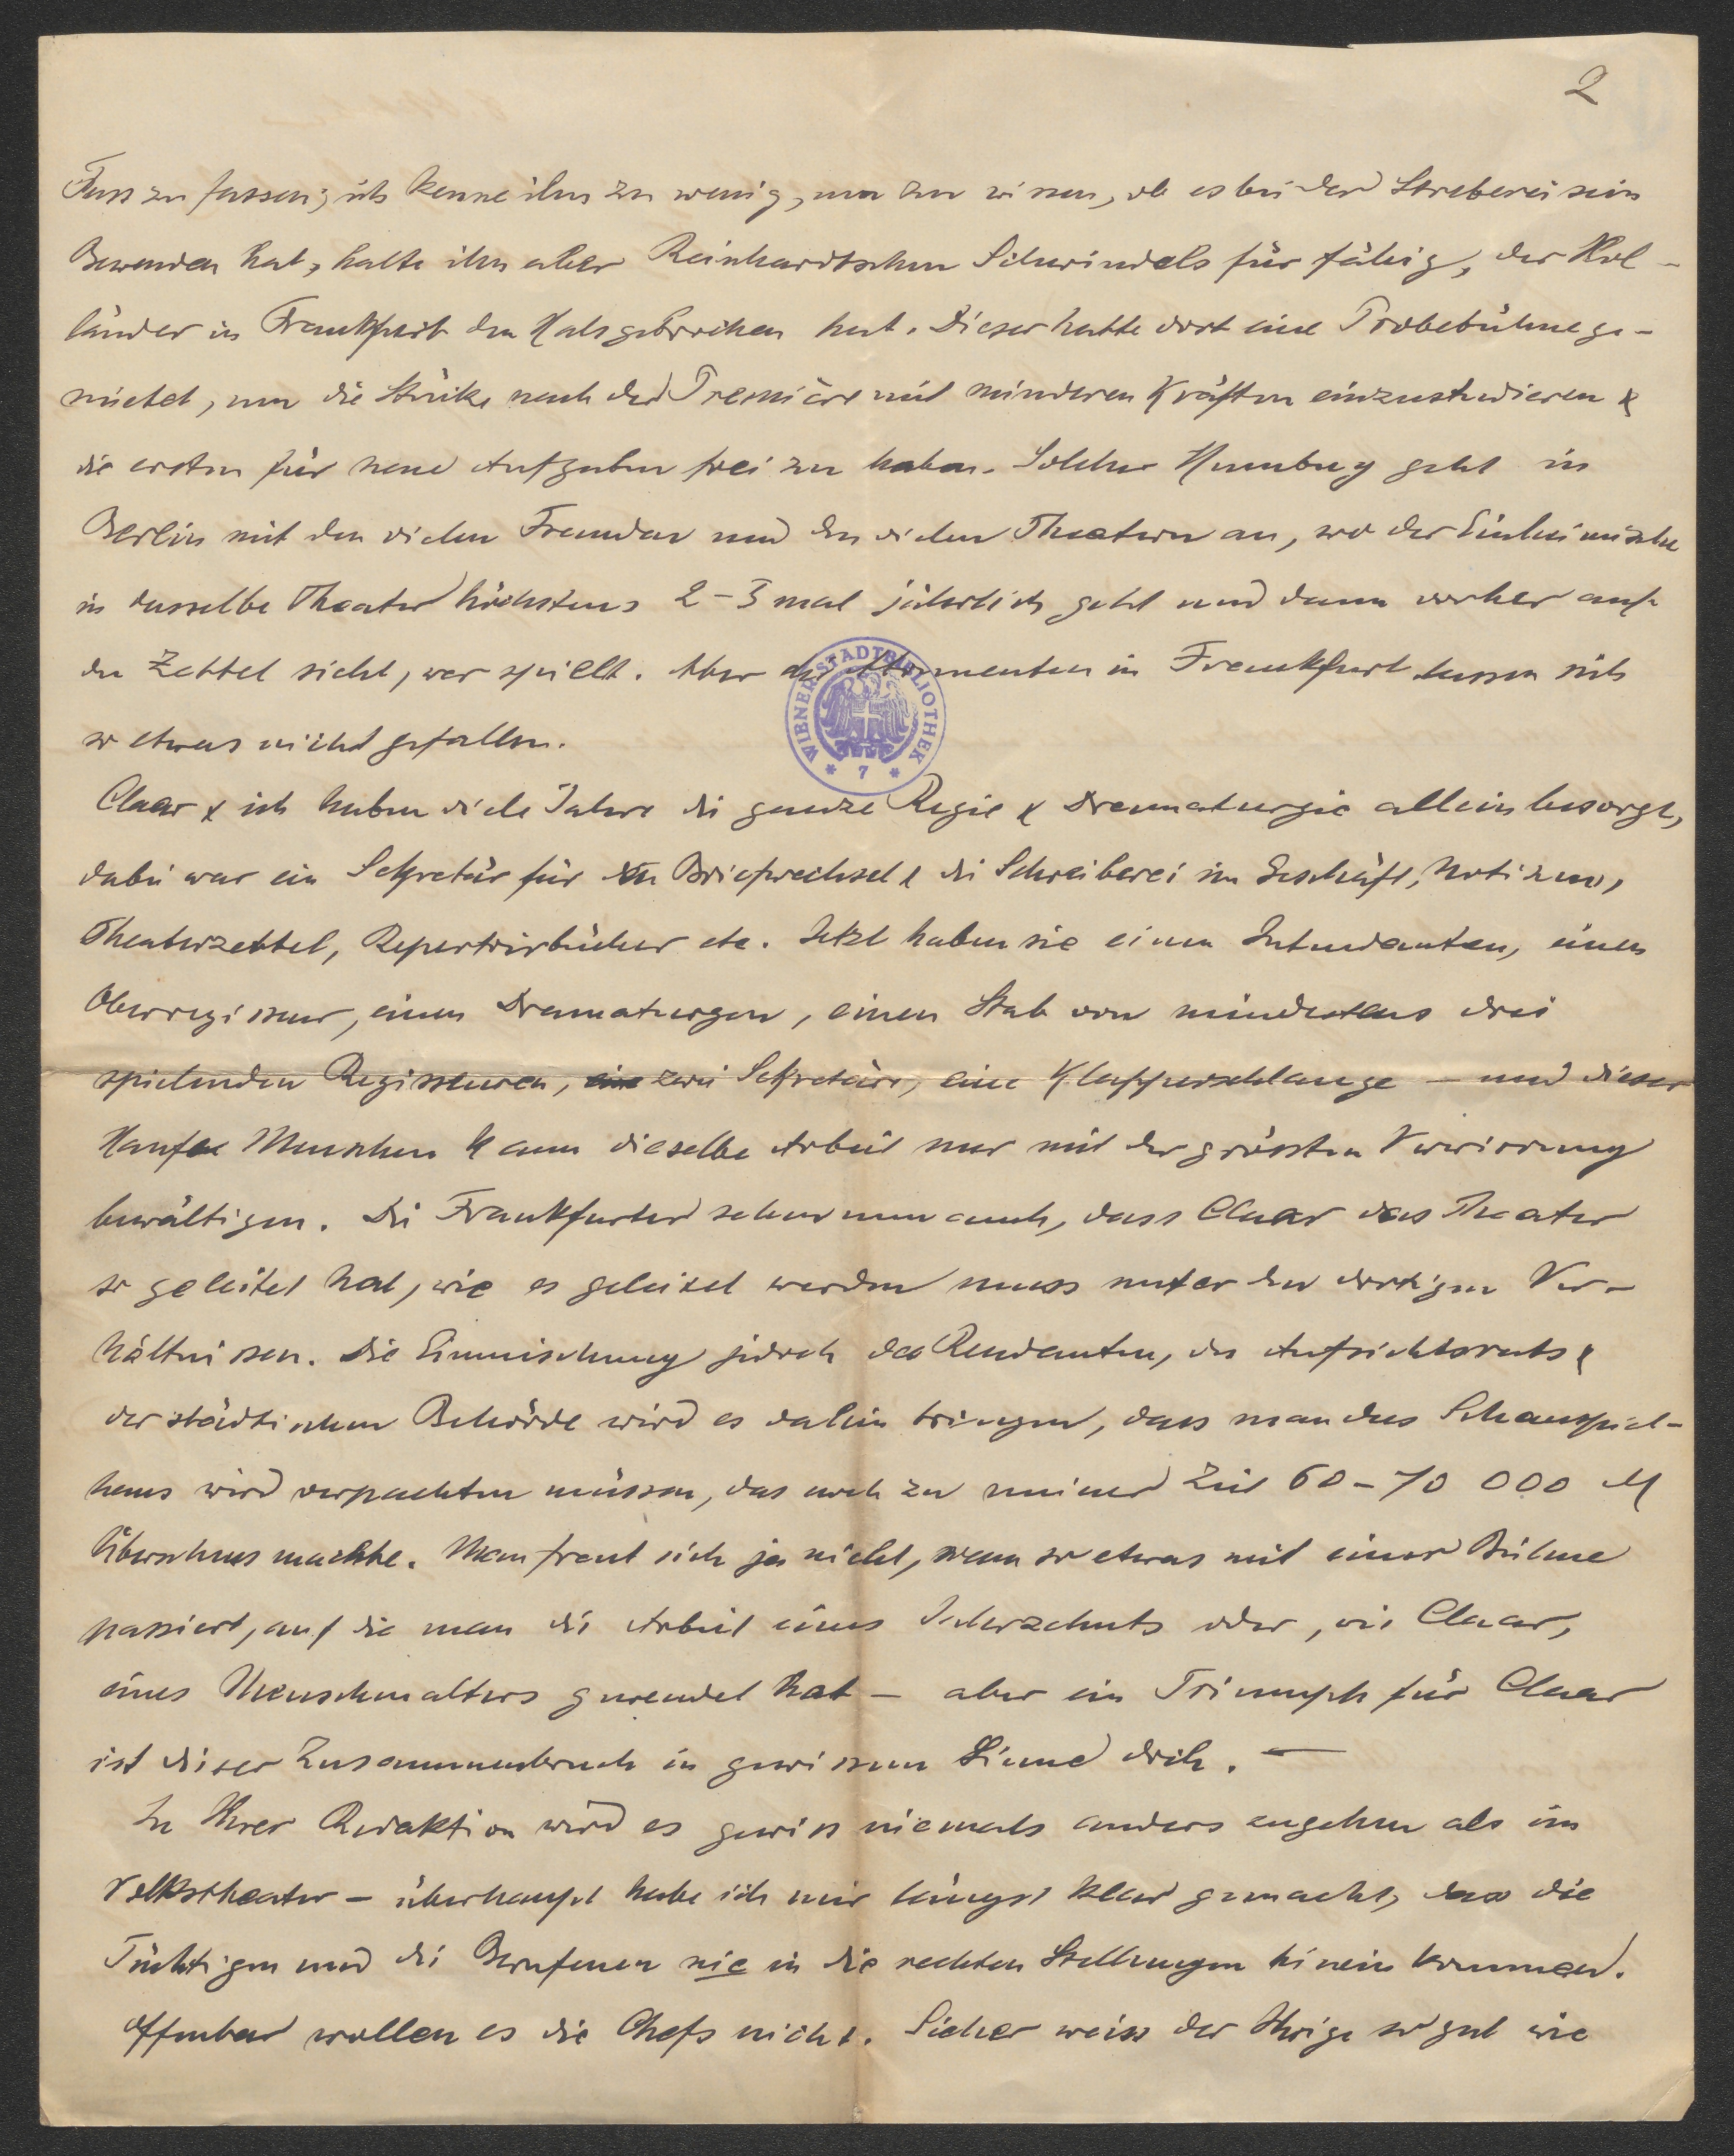 2
Fuss zu fassen; ich kenne ihn zu wenig, um zu wissen, ob es bei der Streberei sein
Bewenden hat, halte ihn aber Reinhardtschen Schwindels für fähig, der Hol-
länder in Frankfurt den Hals gebrochen hat. Dieser hatte dort eine Probebühne ge-
mietet, um die Stücke nach der Première mit minderen Kräften einzustudieren &
die ersten für neue Aufgaben frei zu haben. Solcher Humbug geht in
Berlin mit den vielen Fremden und den vielen Theatern an, wo der Einheimische
in dasselbe Theater höchstens 2-3 mal jährlich geht und dann vorher auf
den Zettel sieht, wer spielt. Aber die Abonnenten in Frankfurt lassen sich
so etwas nicht gefallen.
WIENER STADTBIBLIOTHEK
* 7 *
Claar & ich haben viele Jahre die ganze Regie & Dramaturgie allein besorgt,
dabei war ein Sekretär für den Briefwechsel & die Schreiberei im Geschäft, Notizen,
Theaterzettel, Repertoirbücher etc. Jetzt haben sie einen Intendanten, einen
Oberregisseur, einen Dramaturgen, einen Stab von mindestens drei
spielenden Regisseuren, eine zwei Sekretäre, eine Klapperschlange – und dieser
Haufen Menschen kann dieselbe Arbeit nur mit der grössten Verwirrung
bewältigen. Die Frankfurter sehen nun auch, dass Claar das Theater
so geleitet hat, wie es geleitet werden muss unter den dortigen Ver-
hältnissen. Die Einmischung jedoch des Rendanten, des Aufsichtsrats &
der städtischen Behörde wird es dahin bringen, dass man das Schauspiel-
haus wird verpachten müssen, das noch zu meiner Zeit 60-70 000 M
Überschuss machte. Man freut sich ja nicht, wenn so etwas mit einer Bühne
passiert, auf die man die Arbeit eines Jahrzehnts oder, wie Claar,
eines Menschenalters gewendet hat – aber ein Triumph für Claar
ist dieser Zusammenbruch in gewissem Sinne doch. –
In Ihrer Redaktion wird es gewiss niemals anders angehen als im
Volkstheater – überhaupt habe ich mir längst klar gemacht, dass die
Tüchtigen und die Berufenen nie in die rechten Stellungen hinein kommen.
Offenbar wollen es die Chefs nicht. Sicher weiss der Ihrige so gut wie